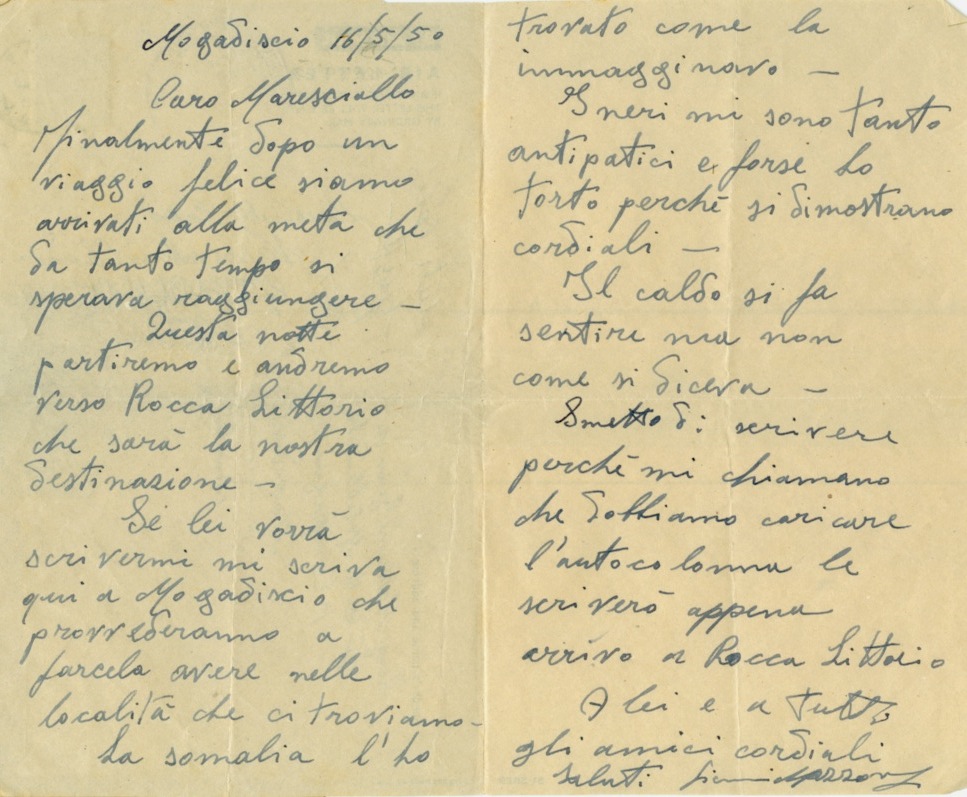 Mogadiscio 16/5/50
Caro Maresciallo
Finalmente dopo un
viaggio felice siamo
arrivati alla meta che
da tanto tempo si
sperava raggiungere –
Questa notte
partiremo e andremo
verso Rocca Littorio
che sarà la nostra
destinazione –
Se lei vorrà
scrivermi mi scriva
qui a Mogadiscio che
provvederanno a
farcela avere nelle
località che ci troviamo –
La somalia l'ho
trovato come la
immagginavo –
I neri mi sono tanto
antipatici e forse ho
torto perché si dimostrano
cordiali –
Il caldo si fa
sentire ma non
come si diceva –
Smetto di scrivere
perché mi chiamano
che dobbiamo caricare
l'autocolonna le
scriverò appena
arrivo a Rocca Littorio
A lei e a tutti
gli amici cordiali
saluti